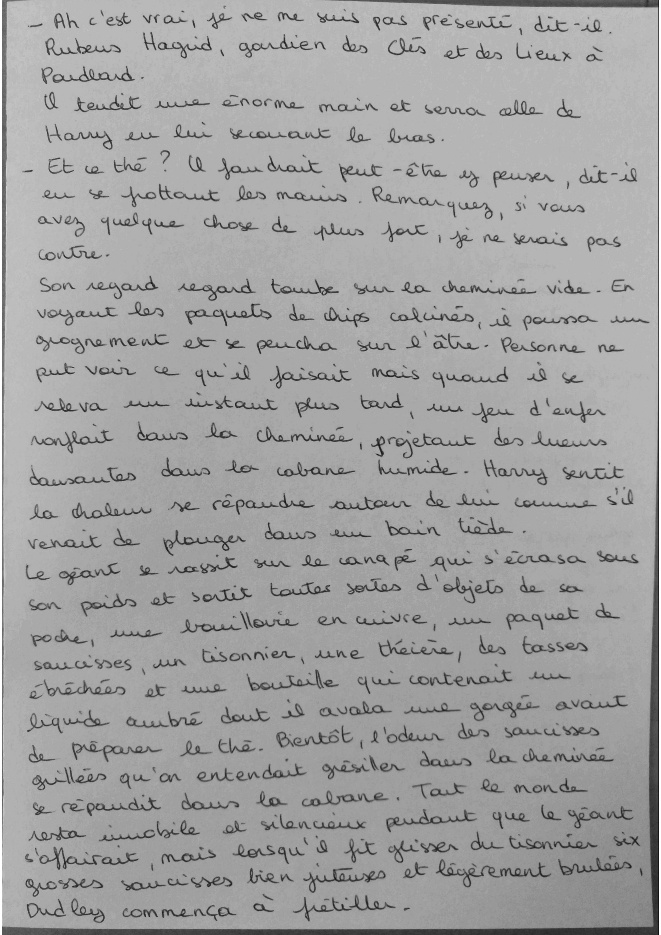 - Ah c'est vrai, je ne me suis pas présenté, dit-il.
Rubeus Hagrid, gardien des Clés et des Lieux à
Poudlard.
Il tendit une énorme main et serra celle de
Harry en lui secouant le bras.
- Et ce thé ? Il faudrait peut-être y penser, dit-il
en se frottant les mains. Remarquez, si vous
avez quelque chose de plus fort, je ne serais pas
contre.
Son regard regard tombe sur la cheminée vide. En
voyant les paquets de chips calcinés, il poussa un
grognement et se pencha sur l'âtre. Personne ne
put voir ce qu'il faisait mais quand il se
releva un instant plus tard, un feu d'enfer
ronflait dans la cheminée, projetant des lueurs
dansantes dans la cabane humide. Harry sentit
la chaleur se répandre autour de lui comme s'il
venait de plonger dans un bain tiède.
Le géant se rassit sur le canapé qui s'écrasa sous
son poids et sortit toutes sortes d'objets de sa
poche, une bouilloire en cuivre, un paquet de
saucisses, un tisonnier, une théière, des tasses
ébréchées et une bouteille qui contenait un
liquide ambré dont il avala une gorgée avant
de préparer le thé. Bientôt, l'odeur des saucisses
grillées qu'on entendait grésiller dans la cheminée
se répandit dans la cabane. Tout le monde
resta immobile et silencieux pendant que le géant
s'affairait, mais lorsqu'il fit glisser du tisonnier six
grosses saucisses bien juteuses et légèrement brulées,
Dudley commença à frétiller.